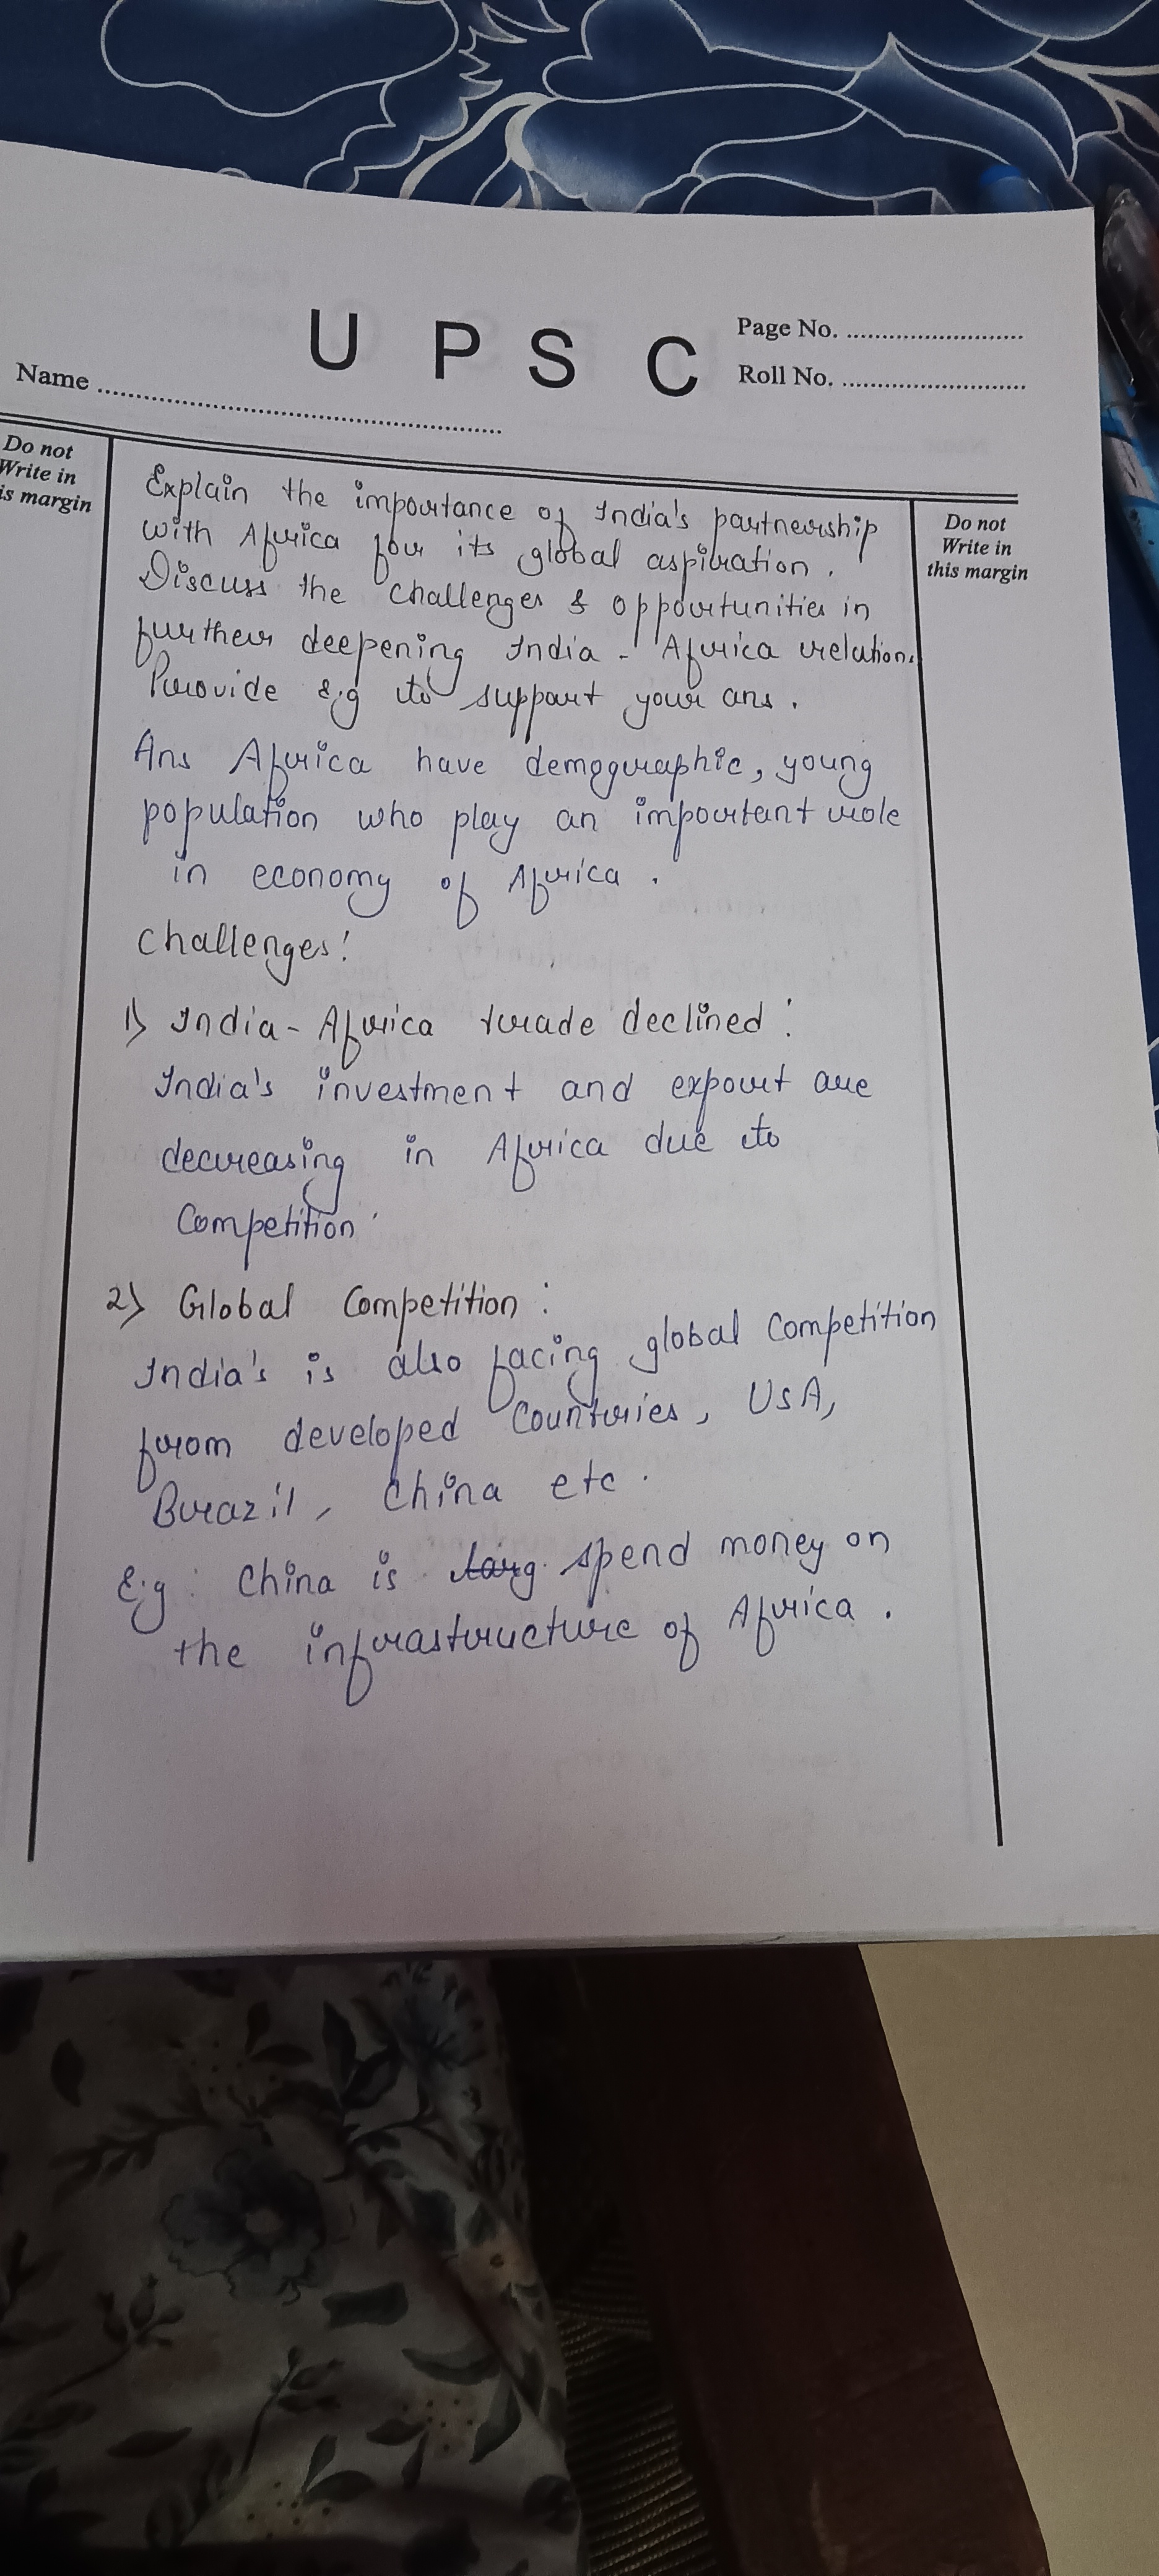 U P S C
Page No. ............................
Roll No. ............................
Name ............................
Do not
Write in
is margin
Do not
Write in
this margin
Explain the importance of India's partnership
with Africa for its global aspiration.
Discuss the challenges & opportunities in
further deepening India - Africa relation.
Provide E.g to support your ans.
Ans Africa have demographic, young
population who play an important role
in economy of Africa.
Challenges:
1) India - Africa trade declined:
India's investment and export are
decreasing in Africa due to
Competition.
2) Global Competition:
India's is also facing global competition
from developed Countries, USA,
Brazil, China etc.
E.g: China is spend money on
the infrastructure of Africa.